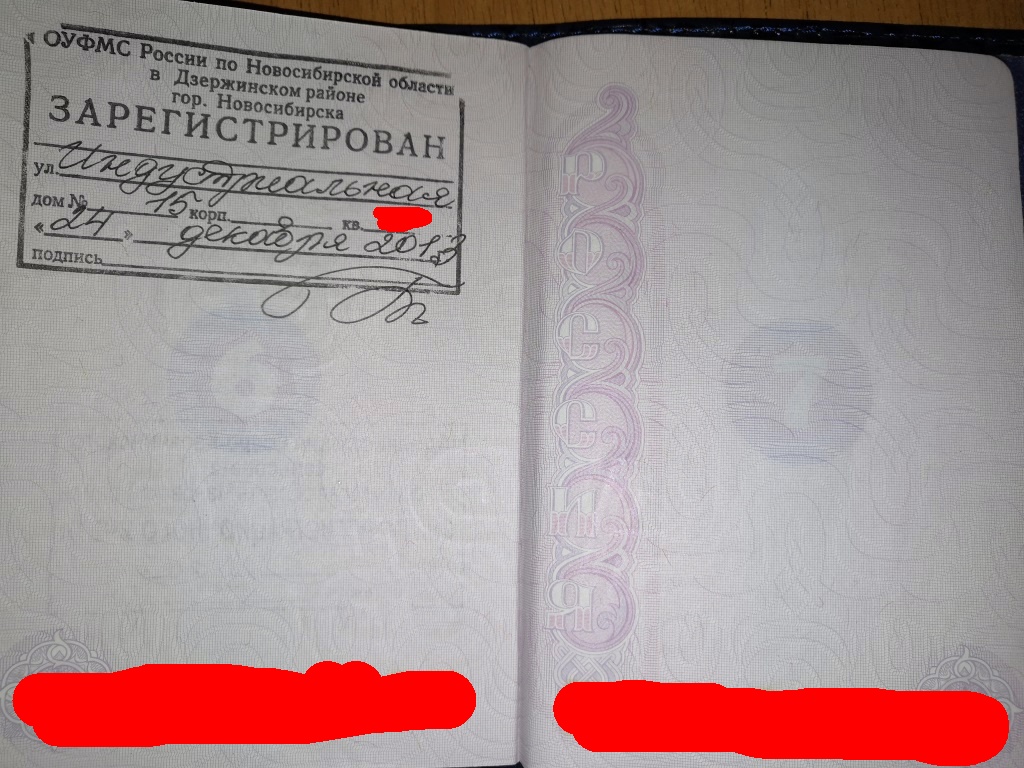 ОУФМС России по Новосибирской области
в Дзержинском районе
гор. Новосибирска
ЗАРЕГИСТРИРОВАН
ул. Индустриальная
дом № 15 корп. кв.
« 24 » декабря 2013
подпись
6
7
РОССИЯ